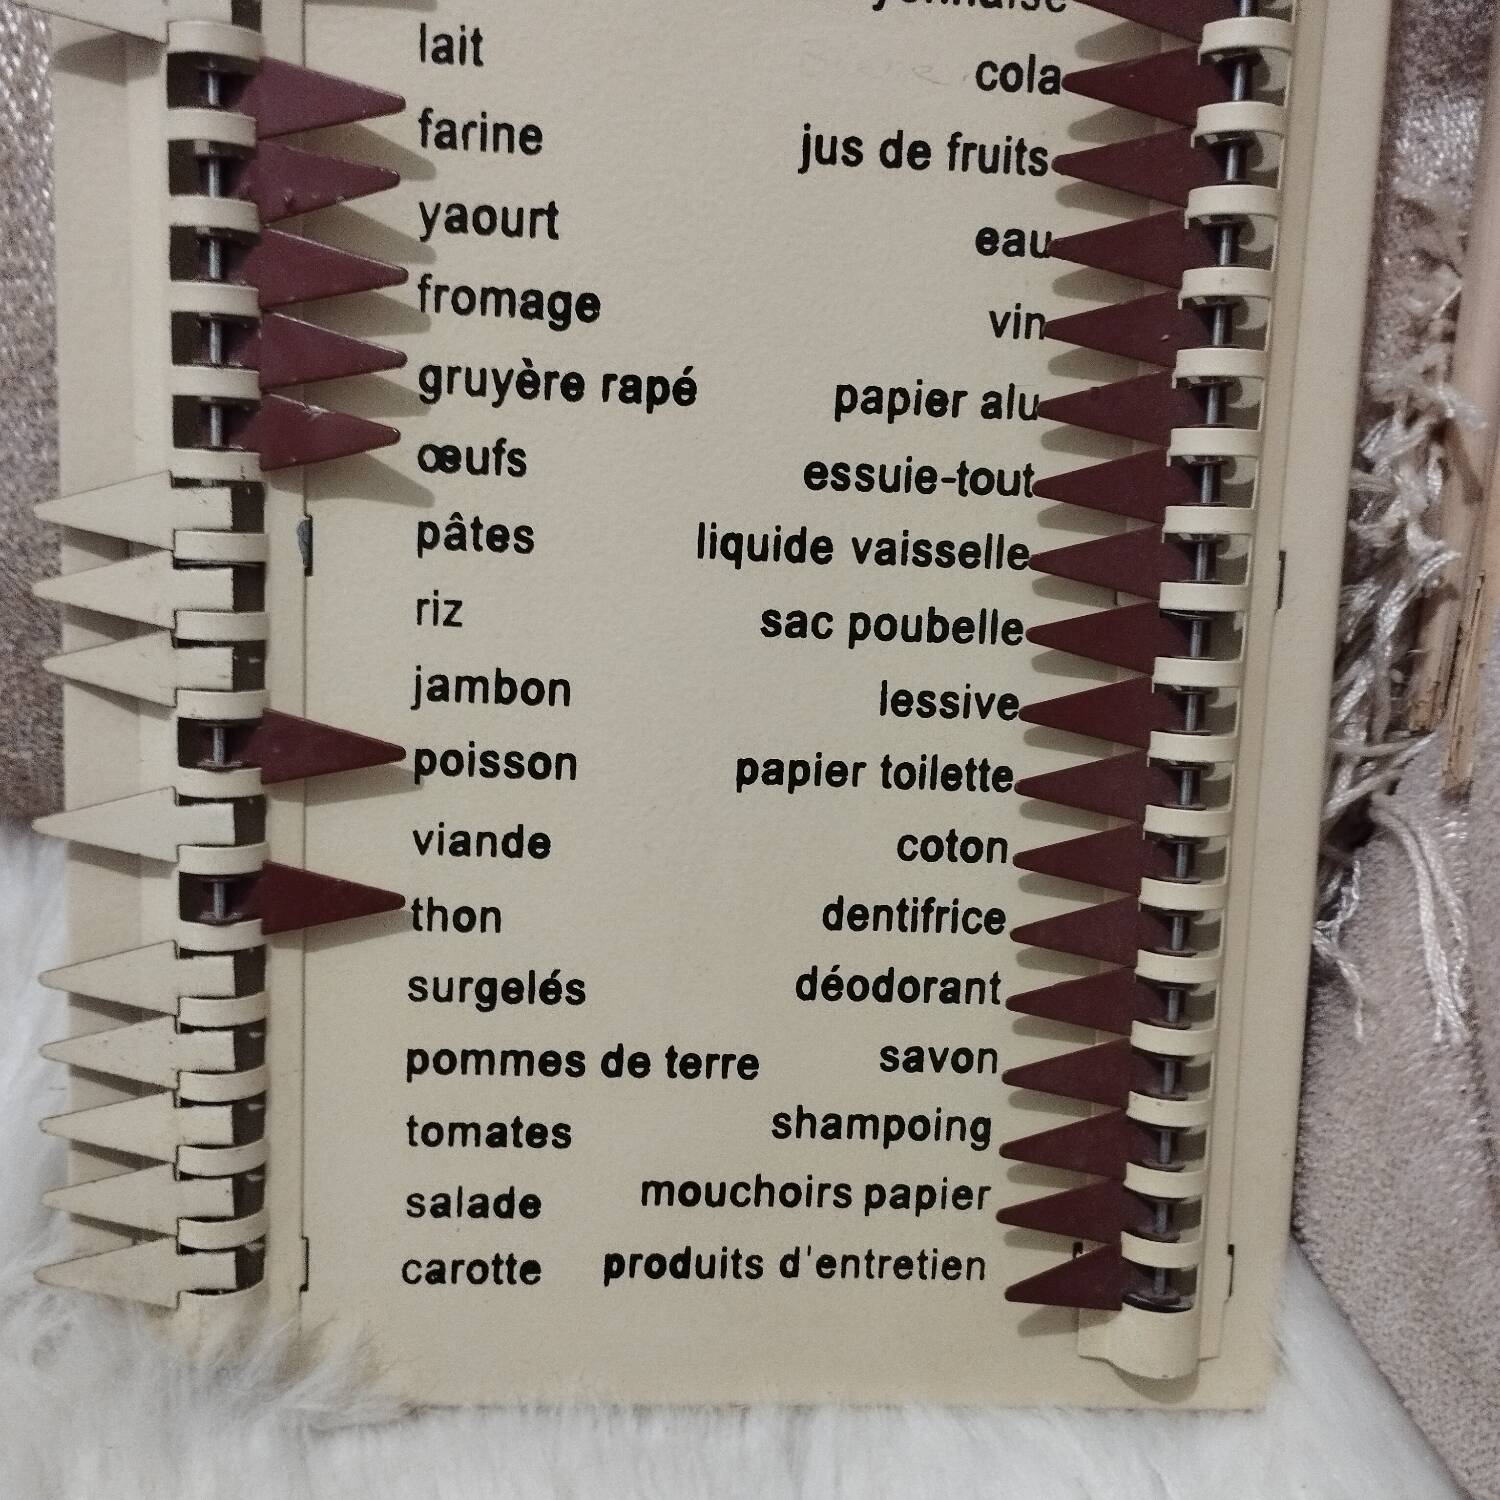 lait
farine
yaourt
fromage
gruyère rapé
œufs
pâtes
riz
jambon
poisson
viande
thon
surgelés
pommes de terre
tomates
salade
carotte
cola
jus de fruits
eau
vin
papier alu
essuie-tout
liquide vaisselle
sac poubelle
lessive
papier toilette
coton
dentifrice
déodorant
savon
shampoing
mouchoirs papier
produits d'entretien